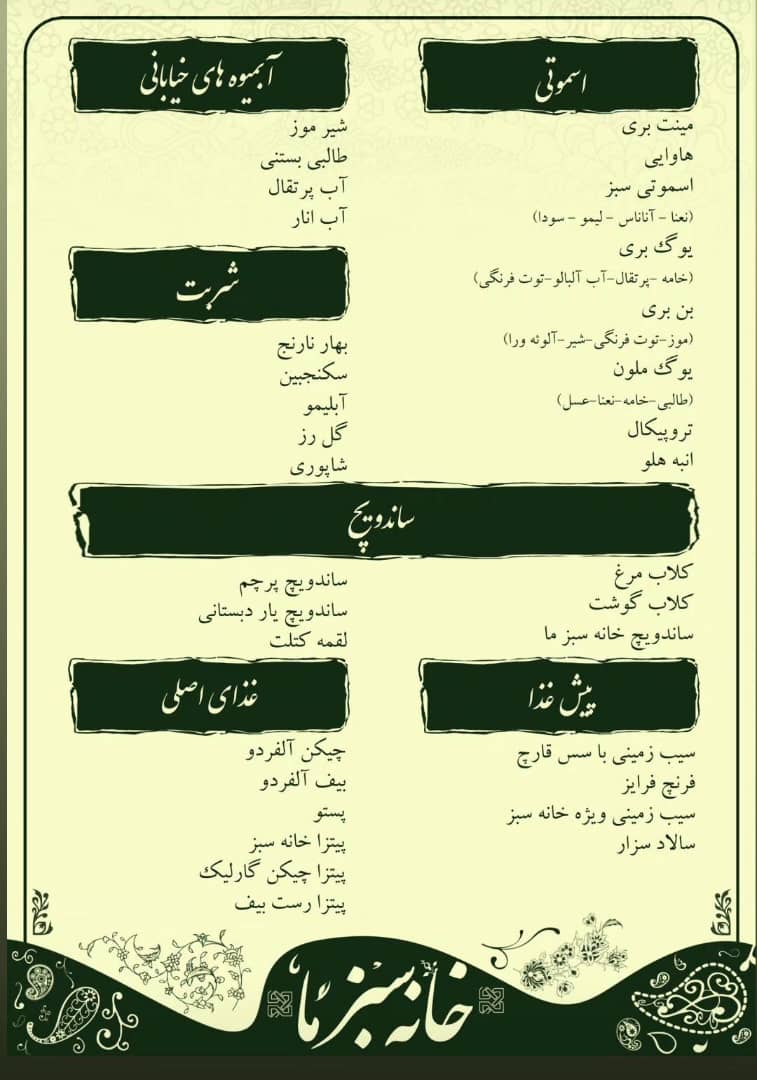 اسموتی
مینت بری
هاوایی
اسموتی سبز
(نعنا - آناناس - لیمو - سودا)
یوگ بری
(خامه -پرتقال-آب آلبالو-توت فرنگی)
بن بری
(موز-توت فرنگی-شیر-آلوئه ورا)
یوگ ملون
(طالبی-خامه-نعنا-عسل)
تروپیکال
انبه هلو
آبمیوه های خیابانی
شیر موز
طالبی بستنی
آب پرتقال
آب انار
شربت
بهار نارنج
سکنجبین
آبلیمو
گل رز
شاپوری
ساندویچ
کلاب مرغ
کلاب گوشت
ساندویچ خانه سبز ما
ساندویچ پرچم
ساندویچ یار دبستانی
لقمه کتلت
پیش غذا
سیب زمینی با سس قارچ
فرنچ فرایز
سیب زمینی ویژه خانه سبز
سالاد سزار
غذای اصلی
چیکن آلفردو
بیف آلفردو
پستو
پیتزا خانه سبز
پیتزا چیکن گارلیک
پیتزا رست بیف
خانه سبز ما